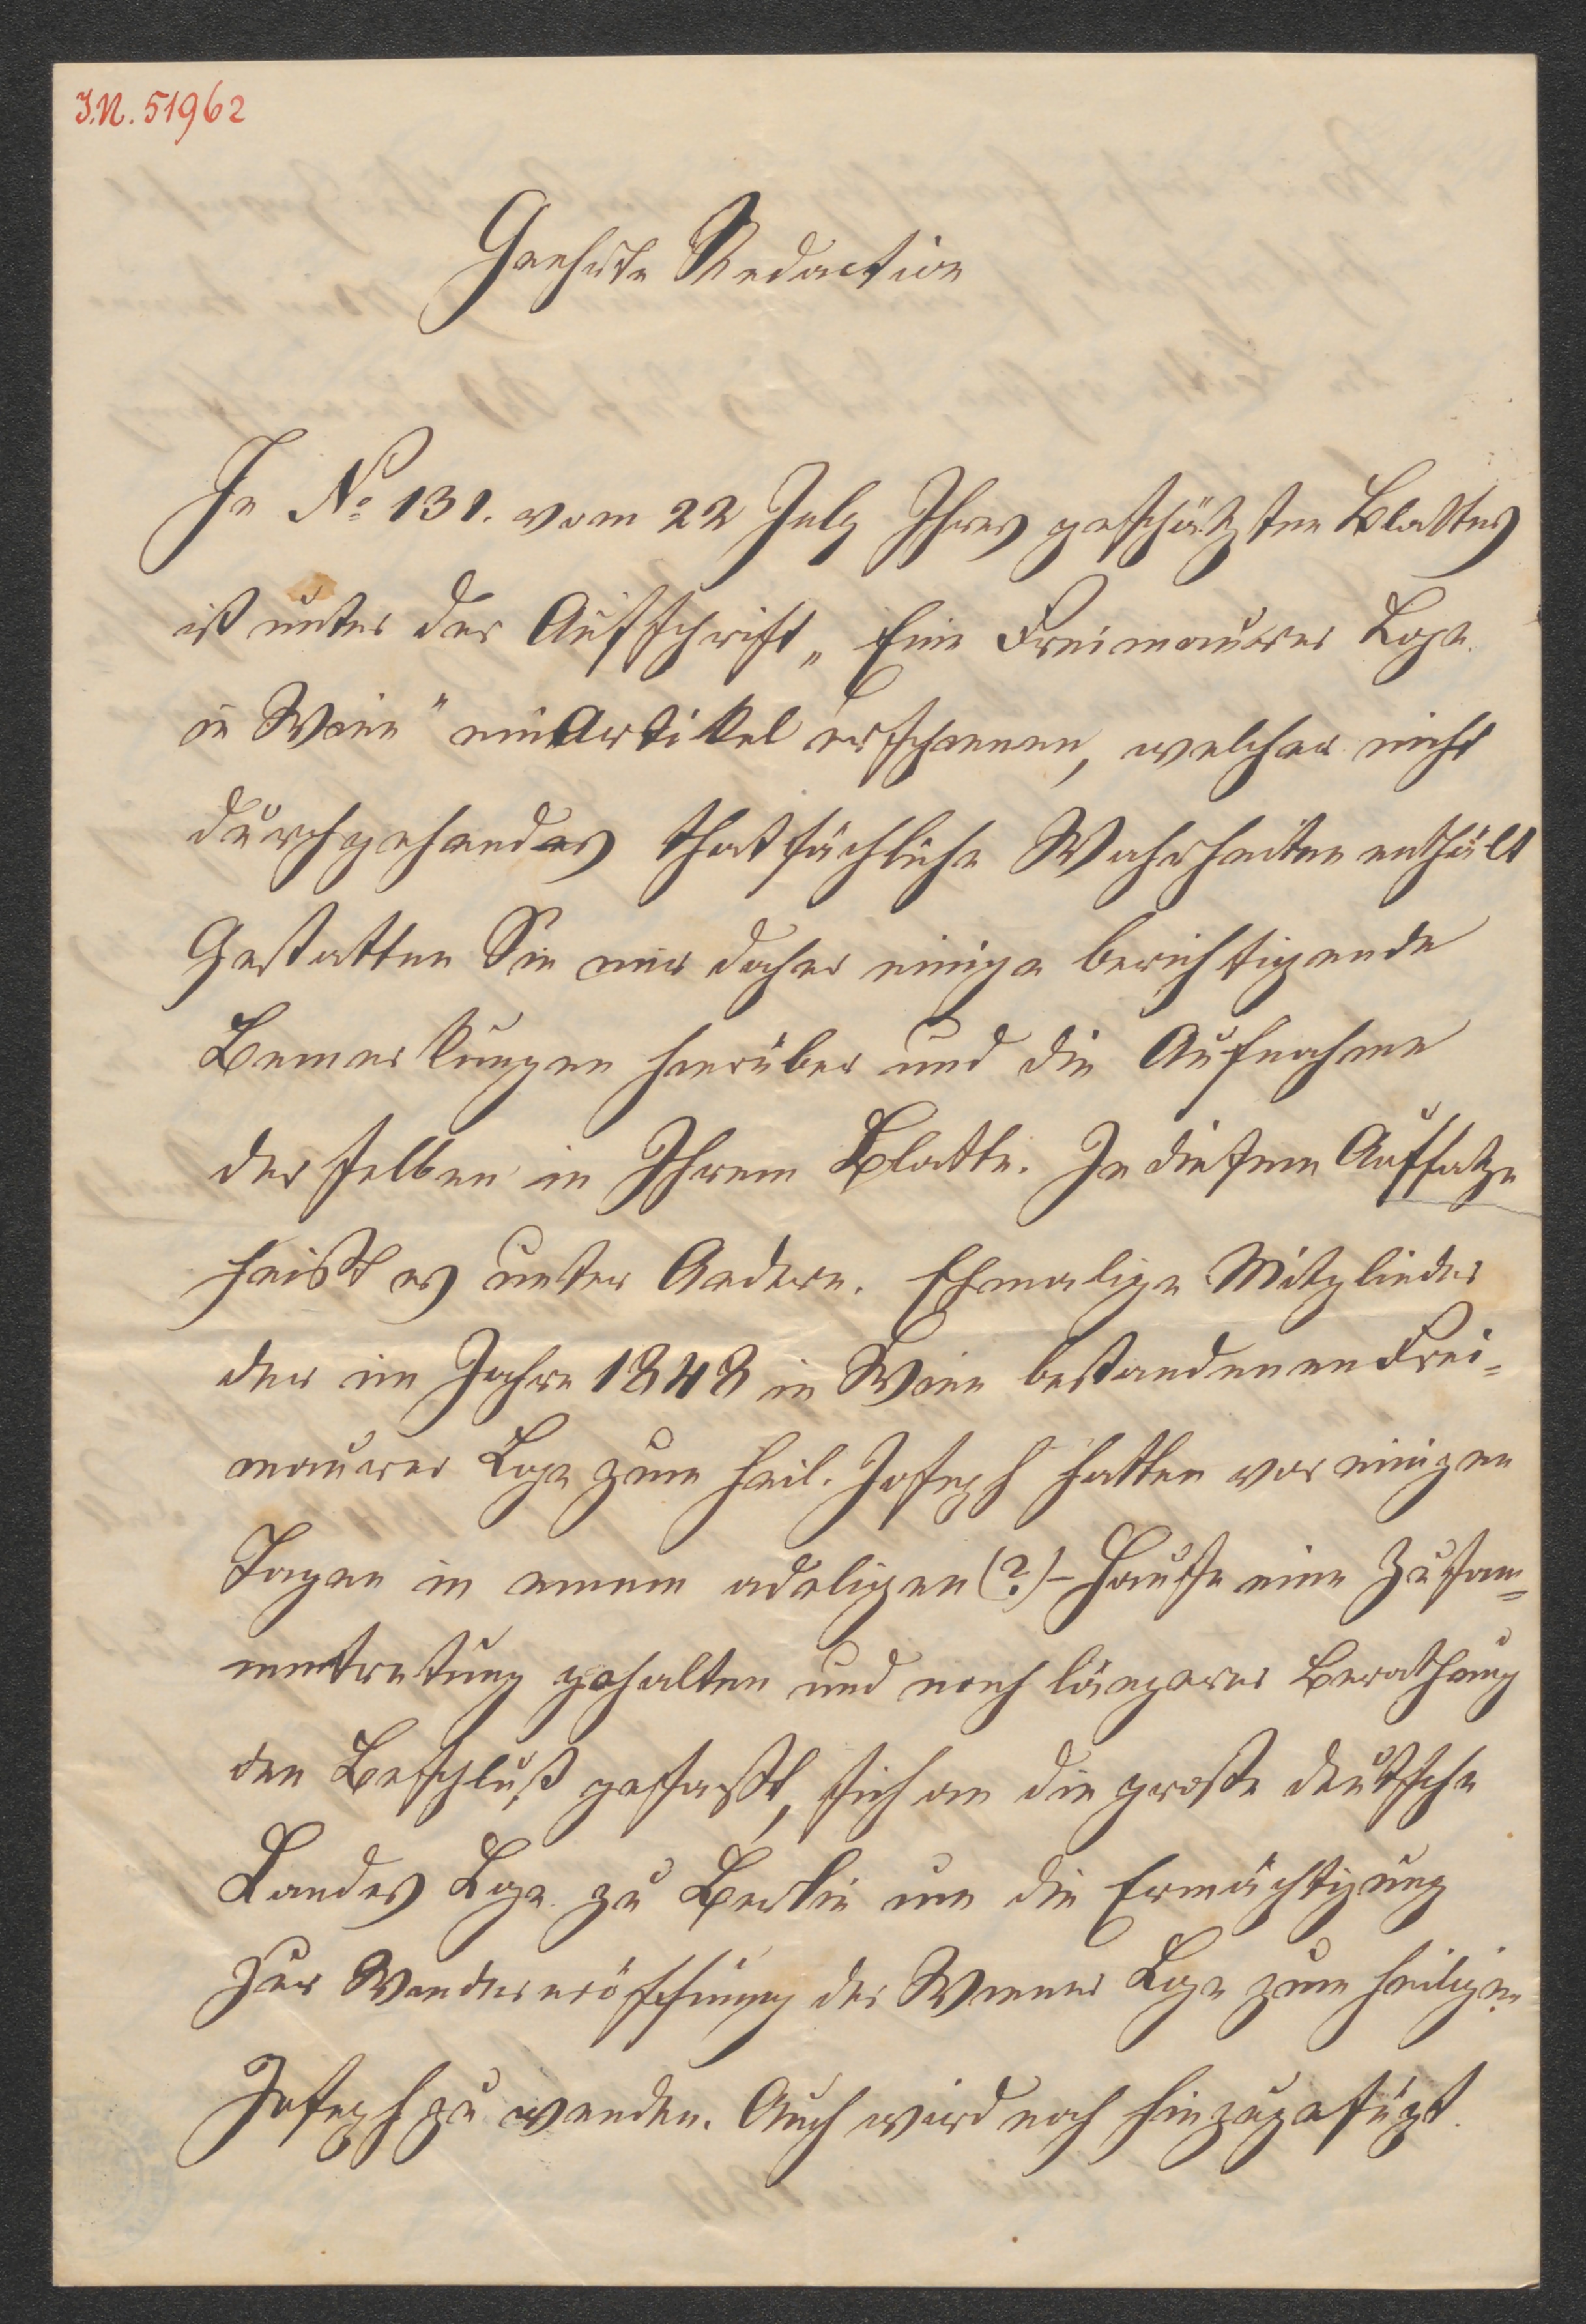 I.N. 51962
Geehrte Redaction
In No 131. vom 22 July Ihres geschätzten Blattes
ist unter der Aufschrift „Eine Freimaurer Loge
in Wien" ein Artikel erschienen, welcher nicht
durchgehendes thatsächliche Wahrheiten enthält
Gestatten Sie mir daher einige berichtigende
Bemerkungen hierüber und die Aufnahme
derselben in Ihrem Blatte. In diesem Aufsatze
heißt es unter Andern. Ehmalige Mitglieder
der im Jahre 1848 in Wien bestandenen Frei-
maurer Loge zum heil. Joseph hatten vor einigen
Tagen in einem adeligen (?)-Hause eine Zusam-
mentretung gehalten und nach längerer Berathung
den Beschluß gefaßt, sich an die große deutsche
Landes Loge zu Berlin um die Ermächtigung
zur Wiedereröffnung der Wiener Loge zum heiligen
Joseph zu wenden. Auch wird noch hinzugefügt.